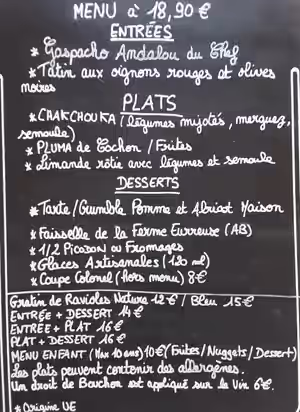 MENU à 18,90 €
ENTRÉES
* Gaspacho Andalou du Chef
* Tatin aux oignons rouges et olives
noires
PLATS
* CHAKCHOUKA (légumes mijotés, merguez,
semoule)
* PLUMA de Cochon / Frites
* Limande rôtie avec légumes et semoule
DESSERTS
* Tarte/Crumble Pomme et Abricot Maison
* Faisselle de la Ferme (AB)
* 1/2 Picodon ou Fromages
* Glaces Artisanales (120 ml)
* Coupe Colonel (hors menu) 8€
Gratin de Ravioles Nature 12€ / Bleu 15€
ENTRÉE + DESSERT 14€
ENTREE + PLAT 16€
PLAT + DESSERT 16€
MENU ENFANT (Max 10 ans) 10€ (Frites/Nuggets/Dessert)
Les plats peuvent contenir des allergènes.
Un droit de Bouchon est appliqué sur le Vin 6€.
* Origine UE